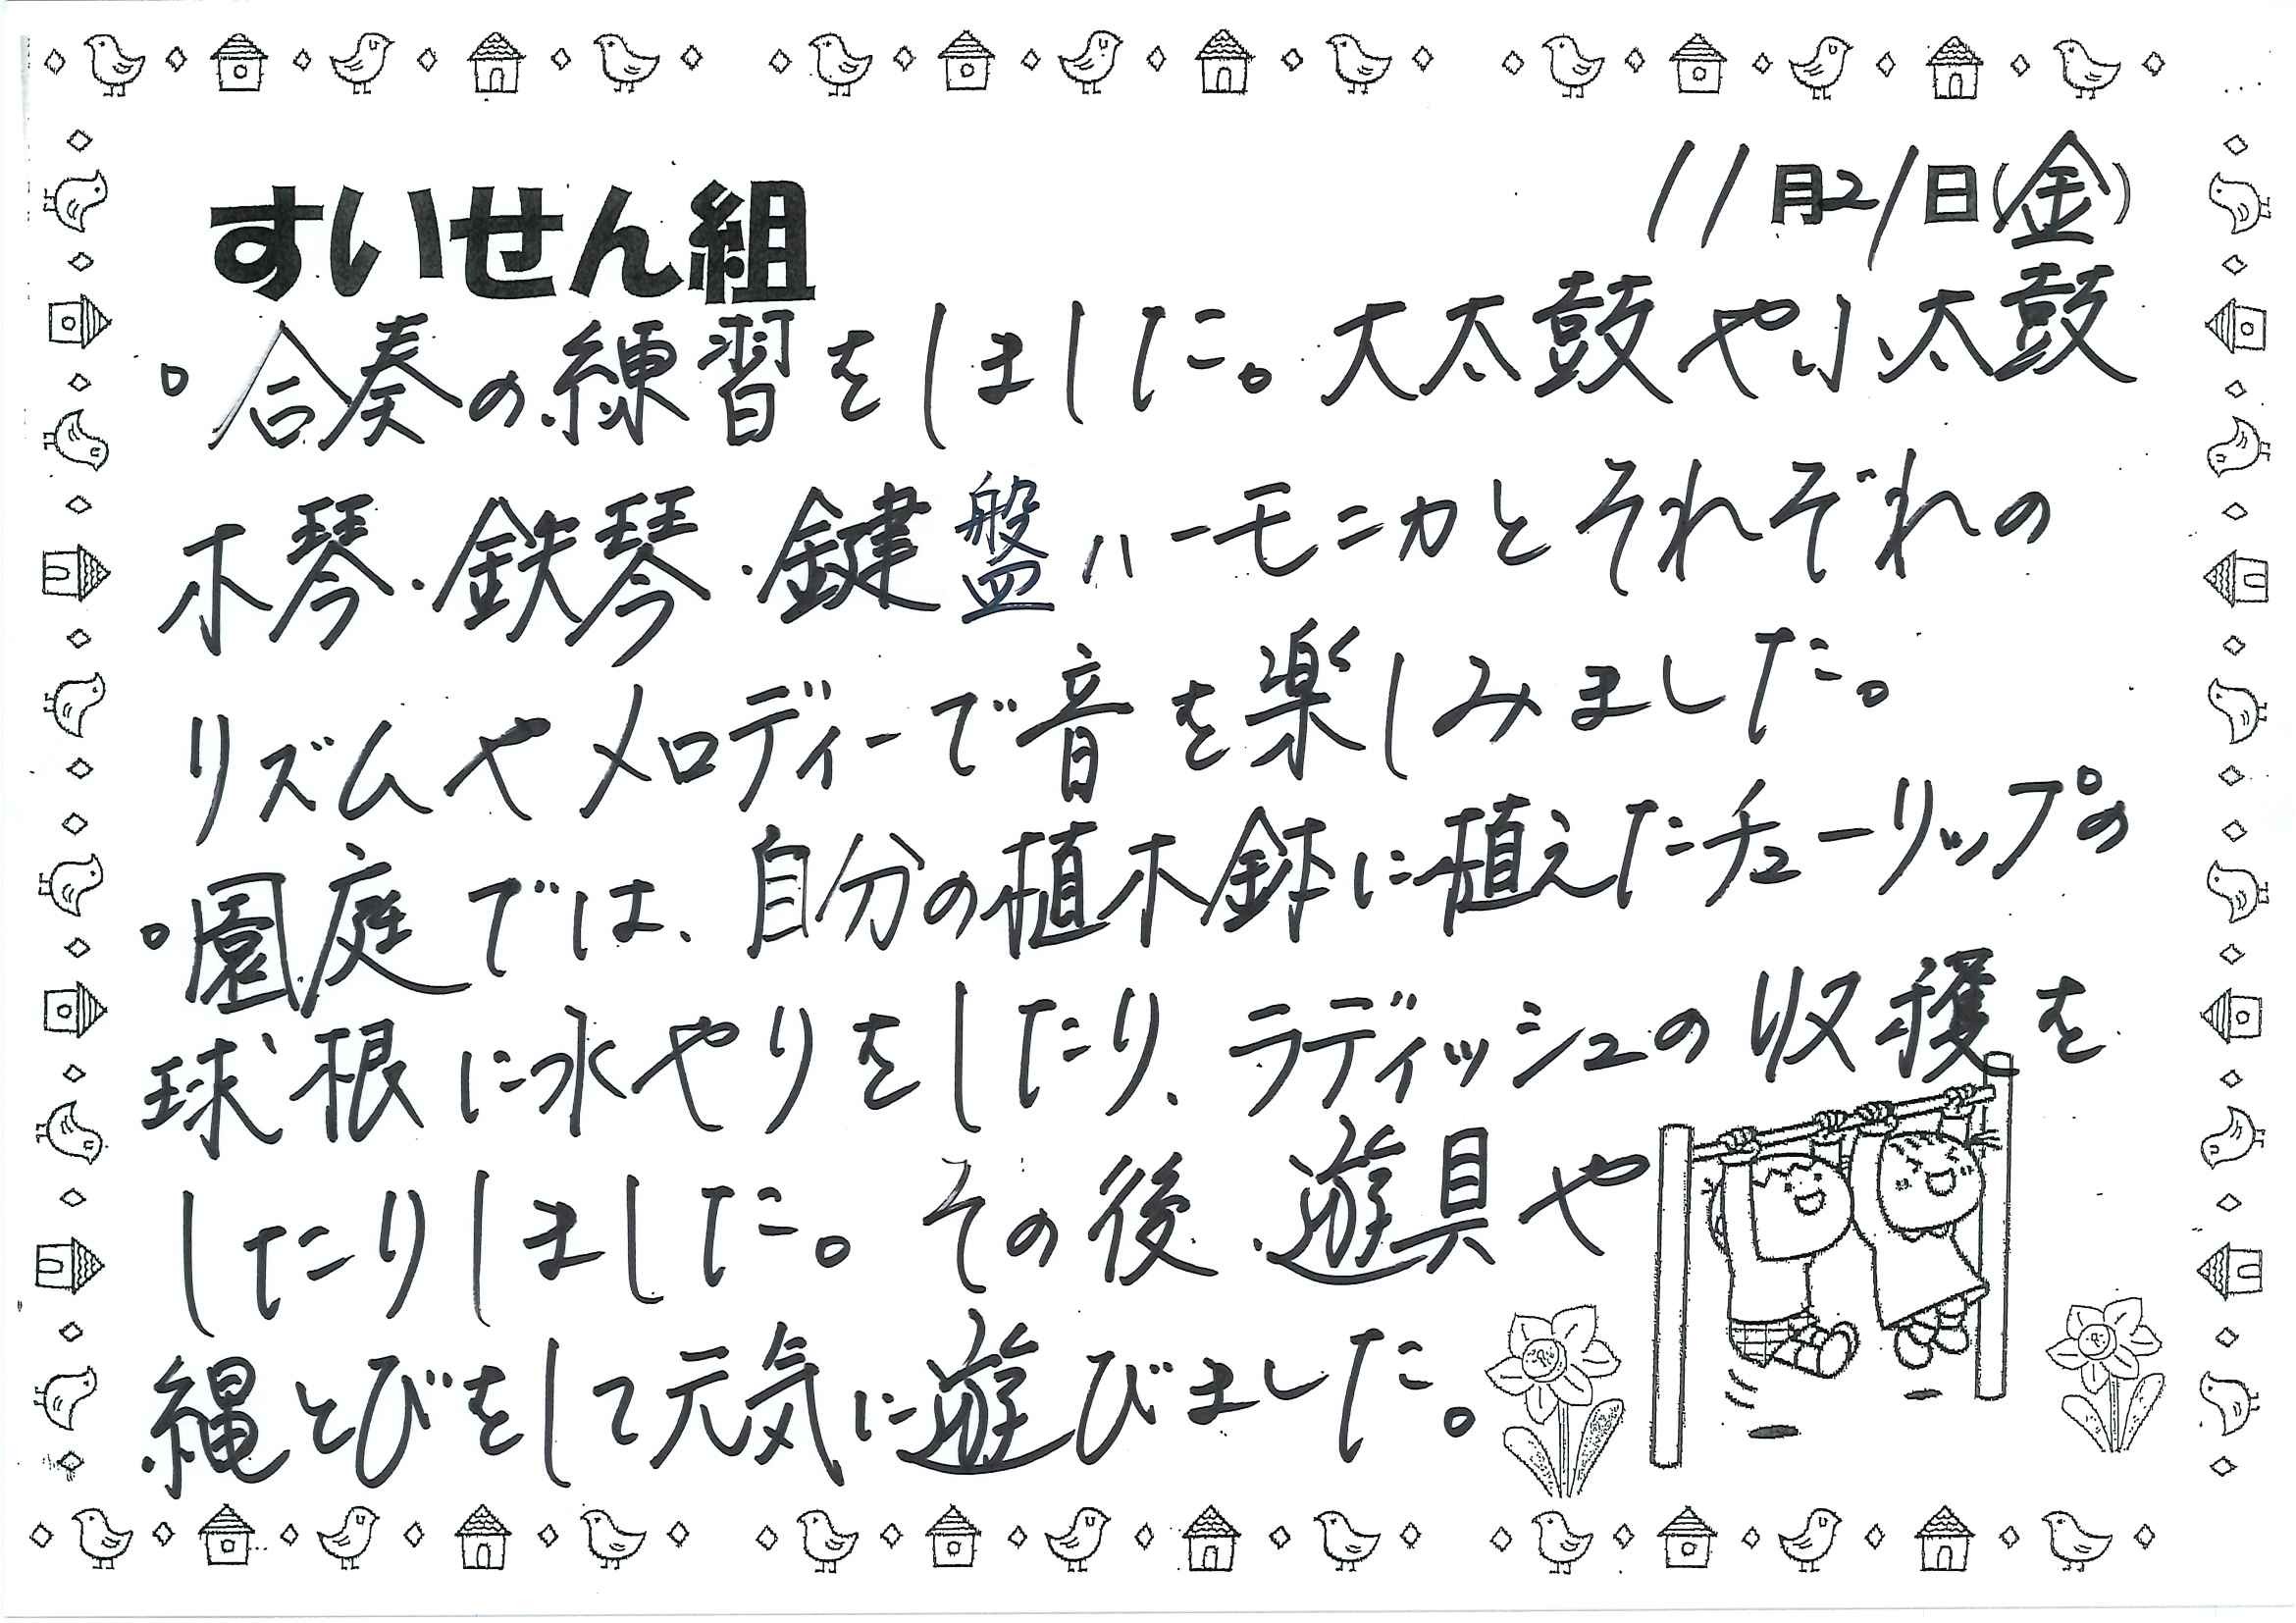 すいせん組
11月21日(金)
。合奏の練習をしました。大太鼓や小太鼓
木琴・鉄琴・鍵盤ハーモニカとそれぞれの
リズムやメロディーで音を楽しみました。
。園庭では、自分の植木鉢に植えたチューリップの
球根に水やりをしたり、ラディッシュの収穫を
したりしました。その後、遊具や
縄とびをして元気に遊びました。